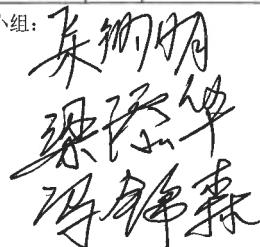 小组：吴钢明
梁添华
冯锦森